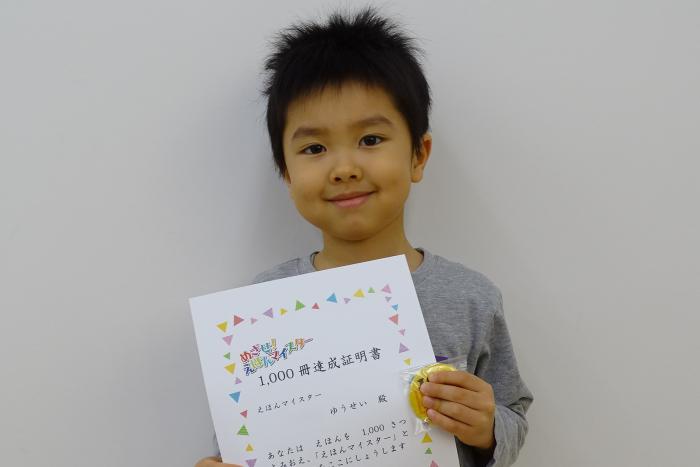 めざせ!
えほんマイスター
1,000 冊達成証明書
えほんマイスター
ゆうせい 殿
あなたは えほんを 1,000 さつ
よみおえ、「えほんマイスター」と
ここにしょうします